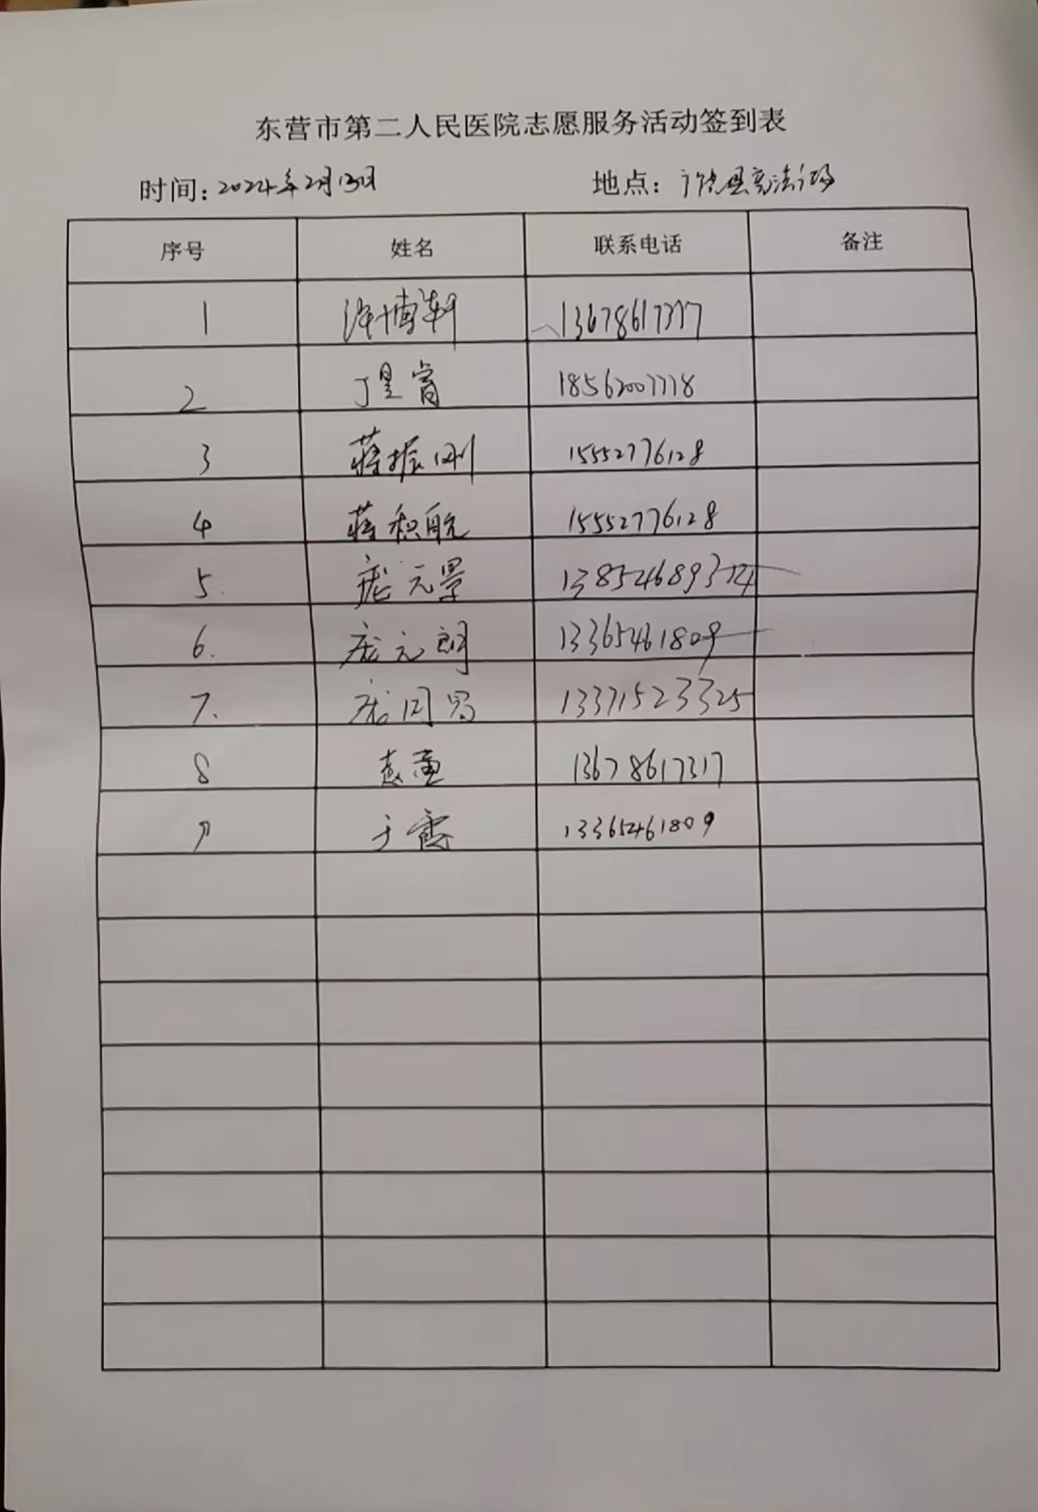 东营市第二人民医院志愿服务活动签到表
时间：2024年2月13日 地点：广饶县
序号 姓名 联系电话 备注
1 博轩 13678617317
2 丁昱 18562007778
3 蒋振刚 15552776128
4 蒋积航 15552776128
5. 庞元景 138546893
6. 庞元朗 13365461809
7. 庞同 13371523325
8 13678617317
9 于霞 13365461809